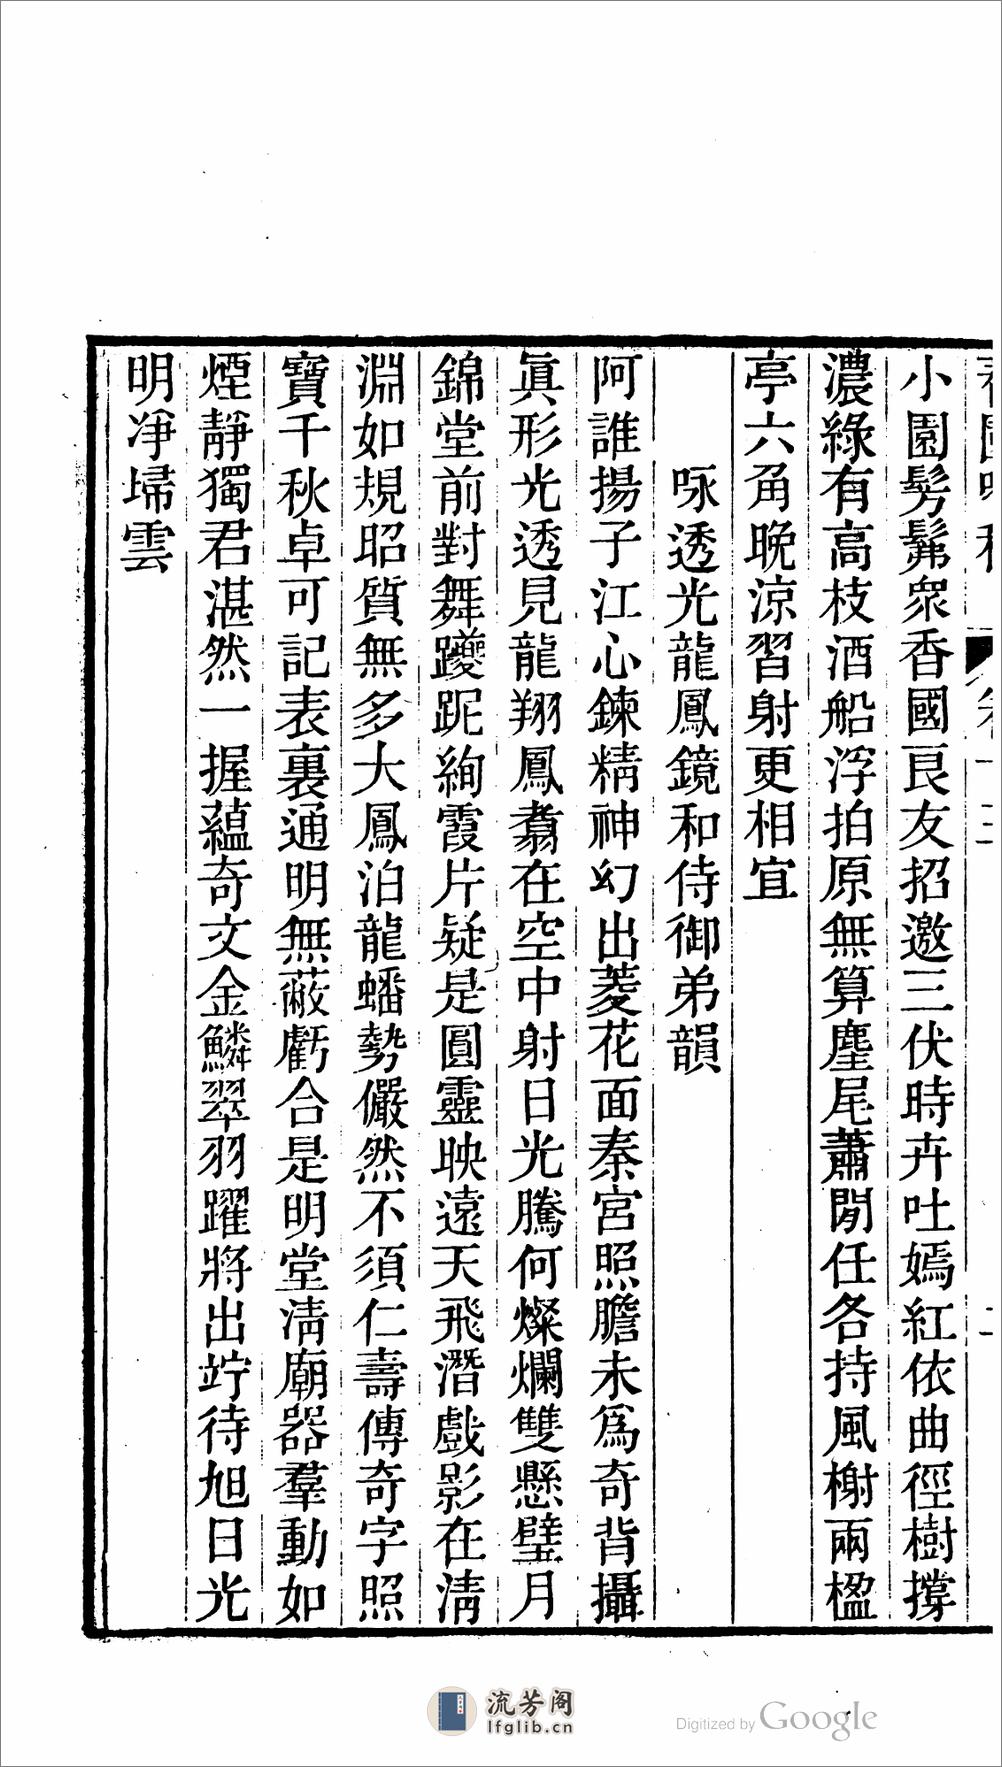 小園髣髴衆香國良友招邀三伏時卉吐嫣紅依曲徑樹撐
濃綠有高枝酒船浮拍原無算麈尾蕭閒任各持風榭兩楹
亭六角晚涼習射更相宜
咏透光龍鳳鏡和侍御弟韻
阿誰揚子江心鍊精神幻出菱花面秦宮照膽未爲奇背攝
眞形光透見龍翔鳳翥在空中射日光騰何燦爛雙懸璧月
錦堂前對舞躨跜絢霞片疑是圓靈映遠天飛潛戲影在淸
淵如規昭質無多大鳳泊龍蟠勢儼然不須仁壽傳奇字照
寶千秋卓可記表裏通明無蔽虧合是明堂淸廟器羣動如
煙靜獨君湛然一握蘊奇文金鱗翠羽躍將出竚待旭日光
明淨埽雲
流芳阁
lfglib.cn
Digitized by Google